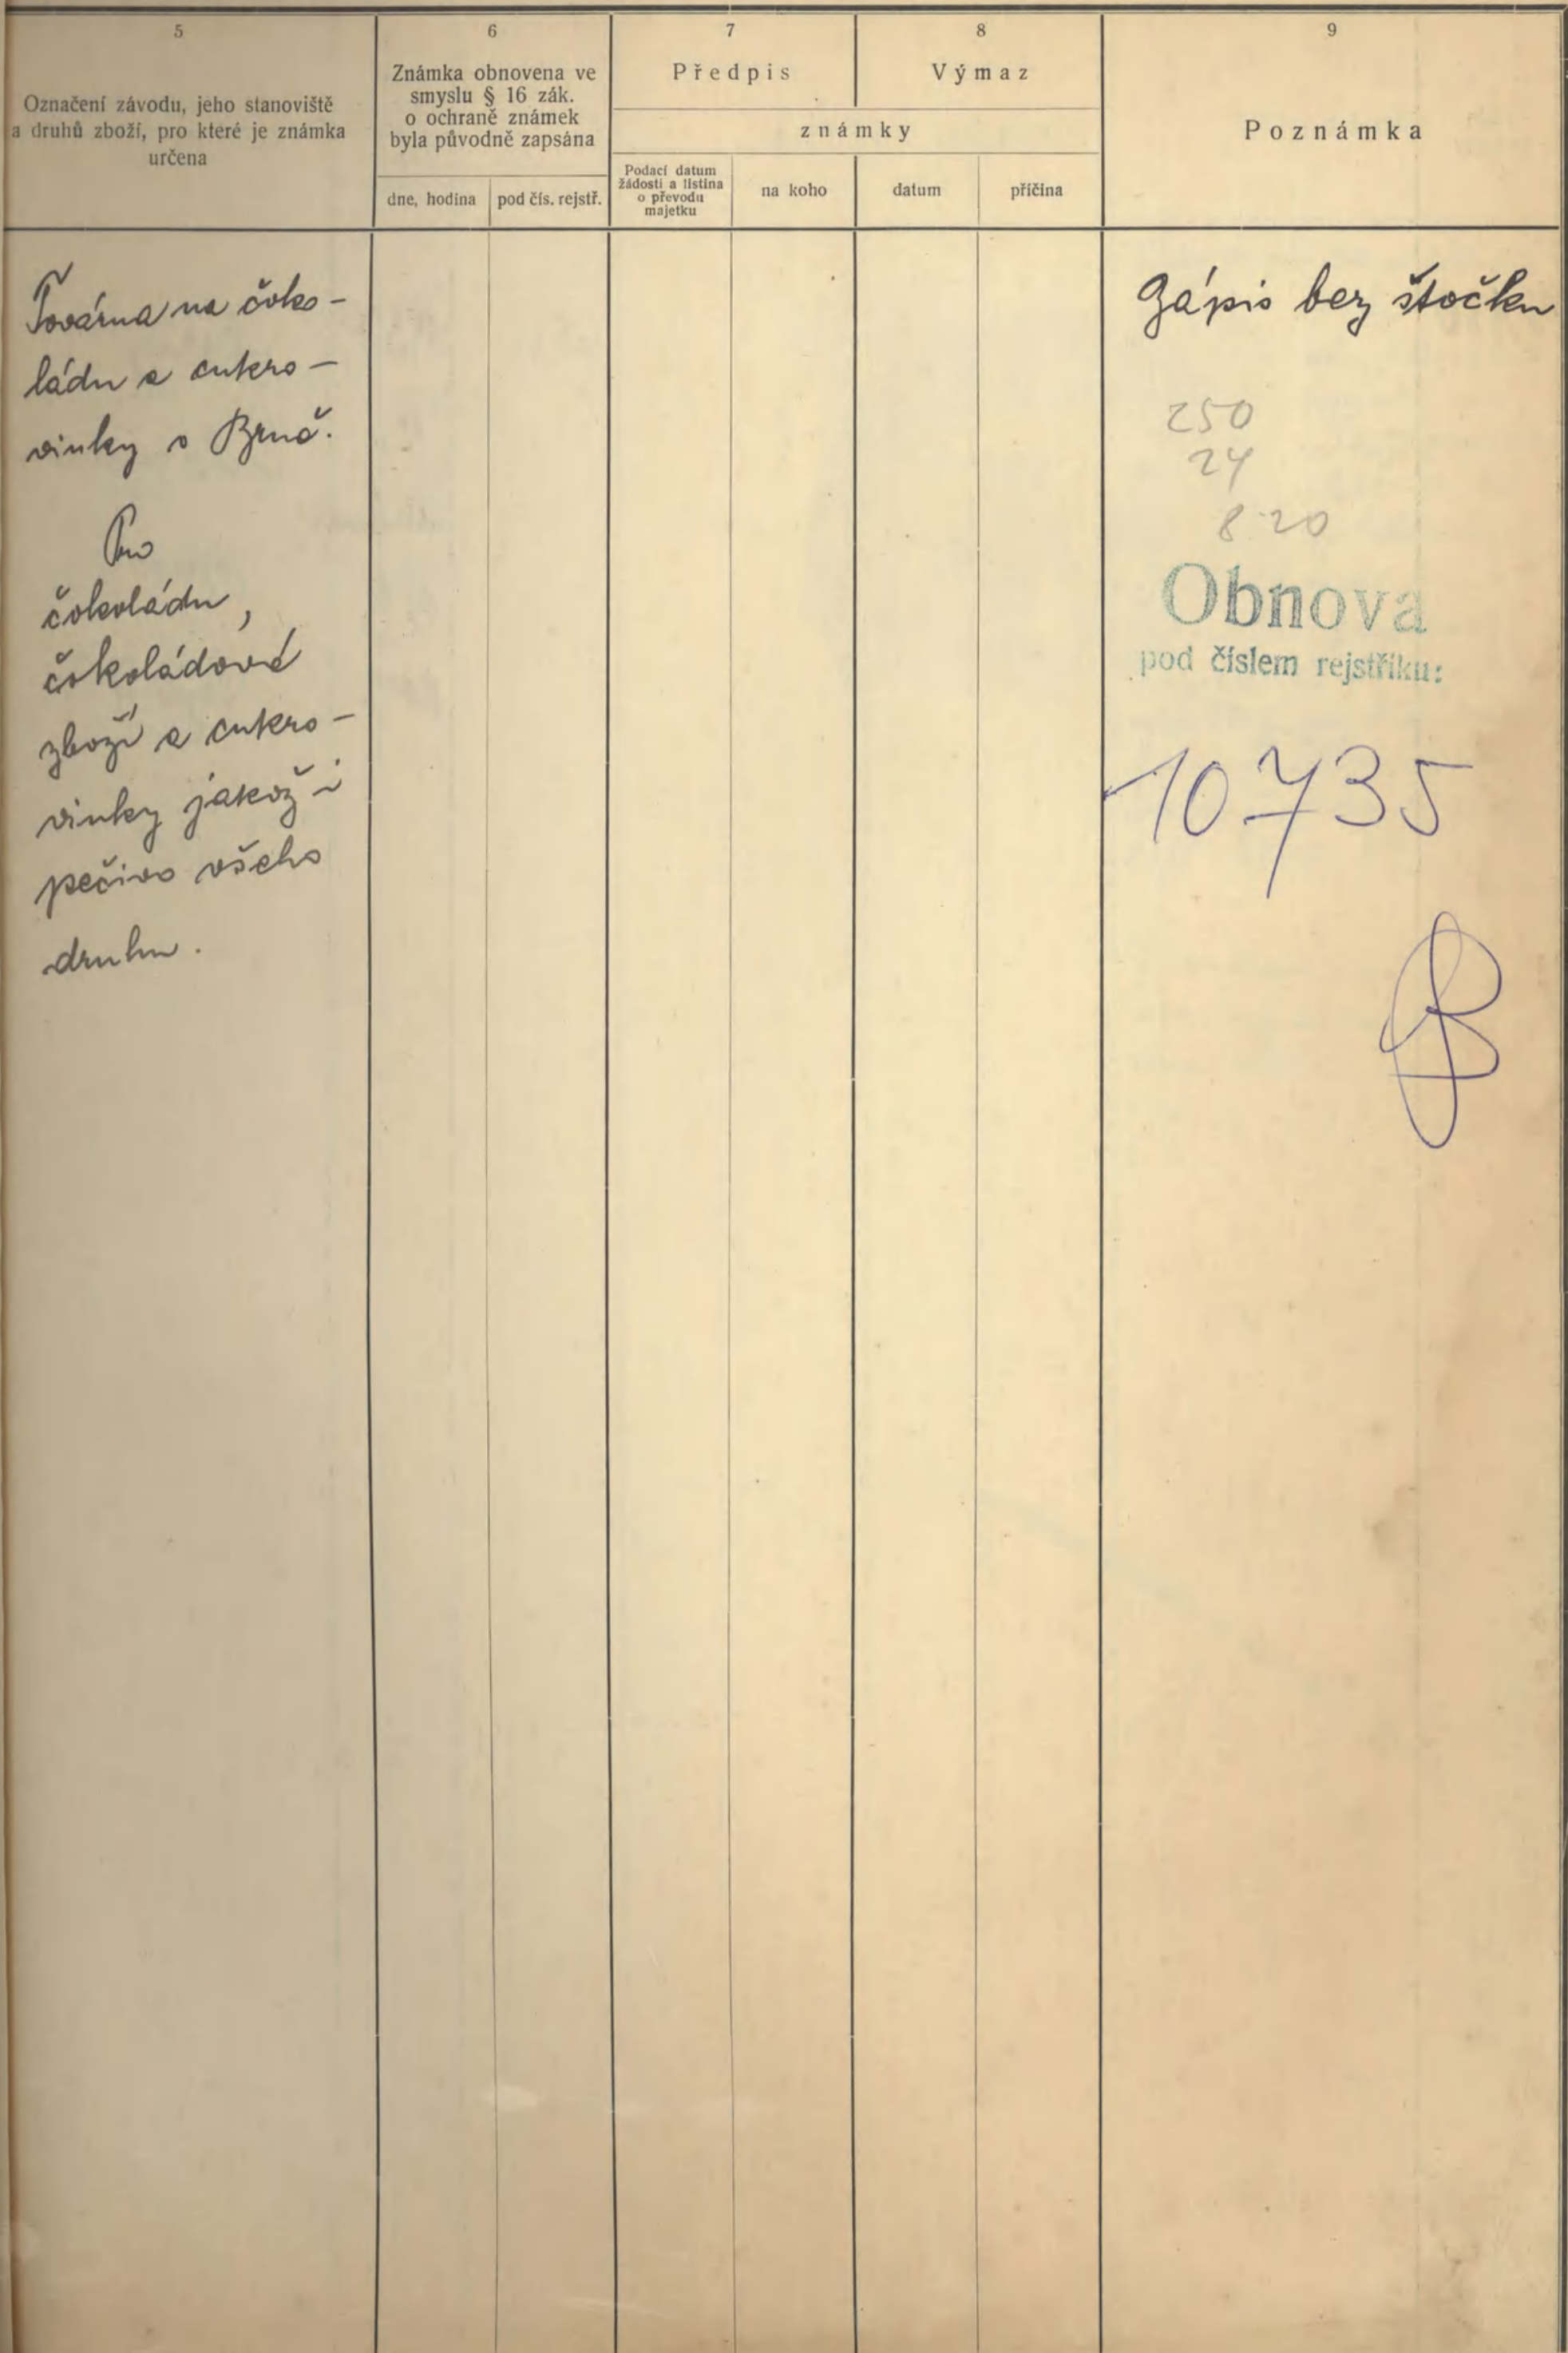 5
Označení závodu, jeho stanoviště
a druhů zboží, pro které je známka
určena
6
Známka obnovena ve
smyslu § 16 zák.
o ochraně známek
byla původně zapsána
dne, hodina
pod čís. rejstř.
7
Předpis
8
Výmaz
známky
Podací datum
žádosti a listina
o převodu
majetku
na koho
datum
příčina
9
Poznámka
Továrna na čoko-
ládu a cukro-
vinky v Brně.
Pro
čokoládu,
čokoládové
zboží a cukro-
vinky jakož i
pečivo všeho
druhu.
Zápis bez štočku
250
24
8.20
Obnova
pod číslem rejstříku:
10735